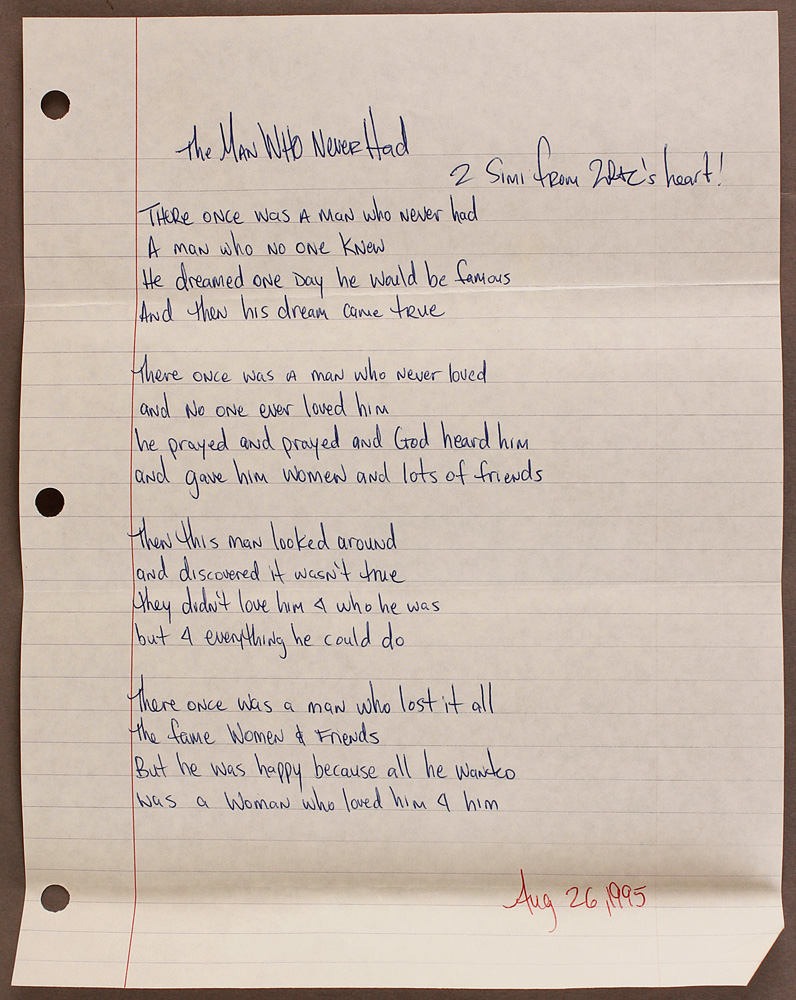 The Man Who Never Had
2 Simi from 2PAC's heart!
There once was a man who never had
A man who no one knew
He dreamed one day he would be famous
And then his dream came true
There once was a man who never loved
and no one ever loved him
he prayed and prayed and God heard him
and gave him women and lots of friends
Then this man looked around
and discovered it wasn't true
they didn't love him 4 who he was
but 4 everything he could do
There once was a man who lost it all
The fame Women & Friends
But he was happy because all he wanted
was a woman who loved him 4 him
Aug 26, 1995